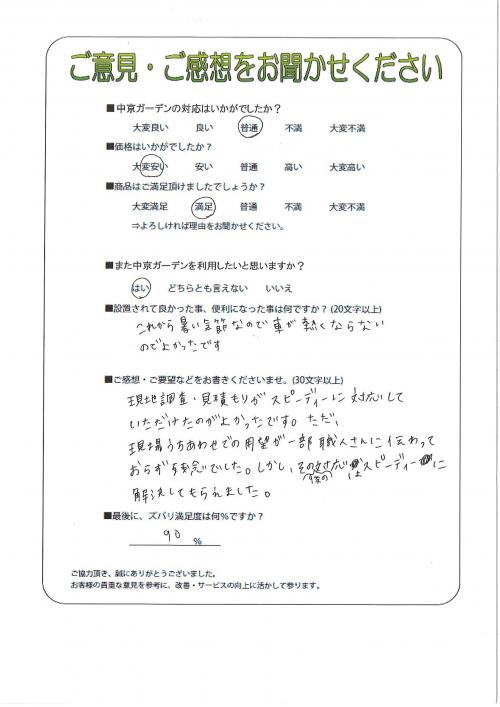 ご意見・ご感想をお聞かせください
■中京ガーデンの対応はいかがでしたか?
大変良い 良い 普通 不満 大変不満
■価格はいかがでしたか?
大変安い 安い 普通 高い 大変高い
■商品はご満足頂けましたでしょうか?
大変満足 満足 普通 不満 大変不満
⇒よろしければ理由をお聞かせください。
■また中京ガーデンを利用したいと思いますか?
はい どちらとも言えない いいえ
■設置されて良かった事、便利になった事は何ですか?(20文字以上)
これから暑い気節なので車が熱くならない
のでよかったです
■ご感想・ご要望などをお書きくださいませ。(30文字以上)
現地調査・見積もりがスピーディーに対応して
いただけたのがよかったです。ただ、
現場うちあわせでの用望が一部職人さんに伝わって
おらず残念でした。しかし、その対応はスピーディーに
後の
解決してもらえました。
■最後に、ズバリ満足度は何%ですか?
90 %
ご協力頂き、誠にありがとうございました。
お客様の貴重な意見を参考に、改善・サービスの向上に活かして参ります。